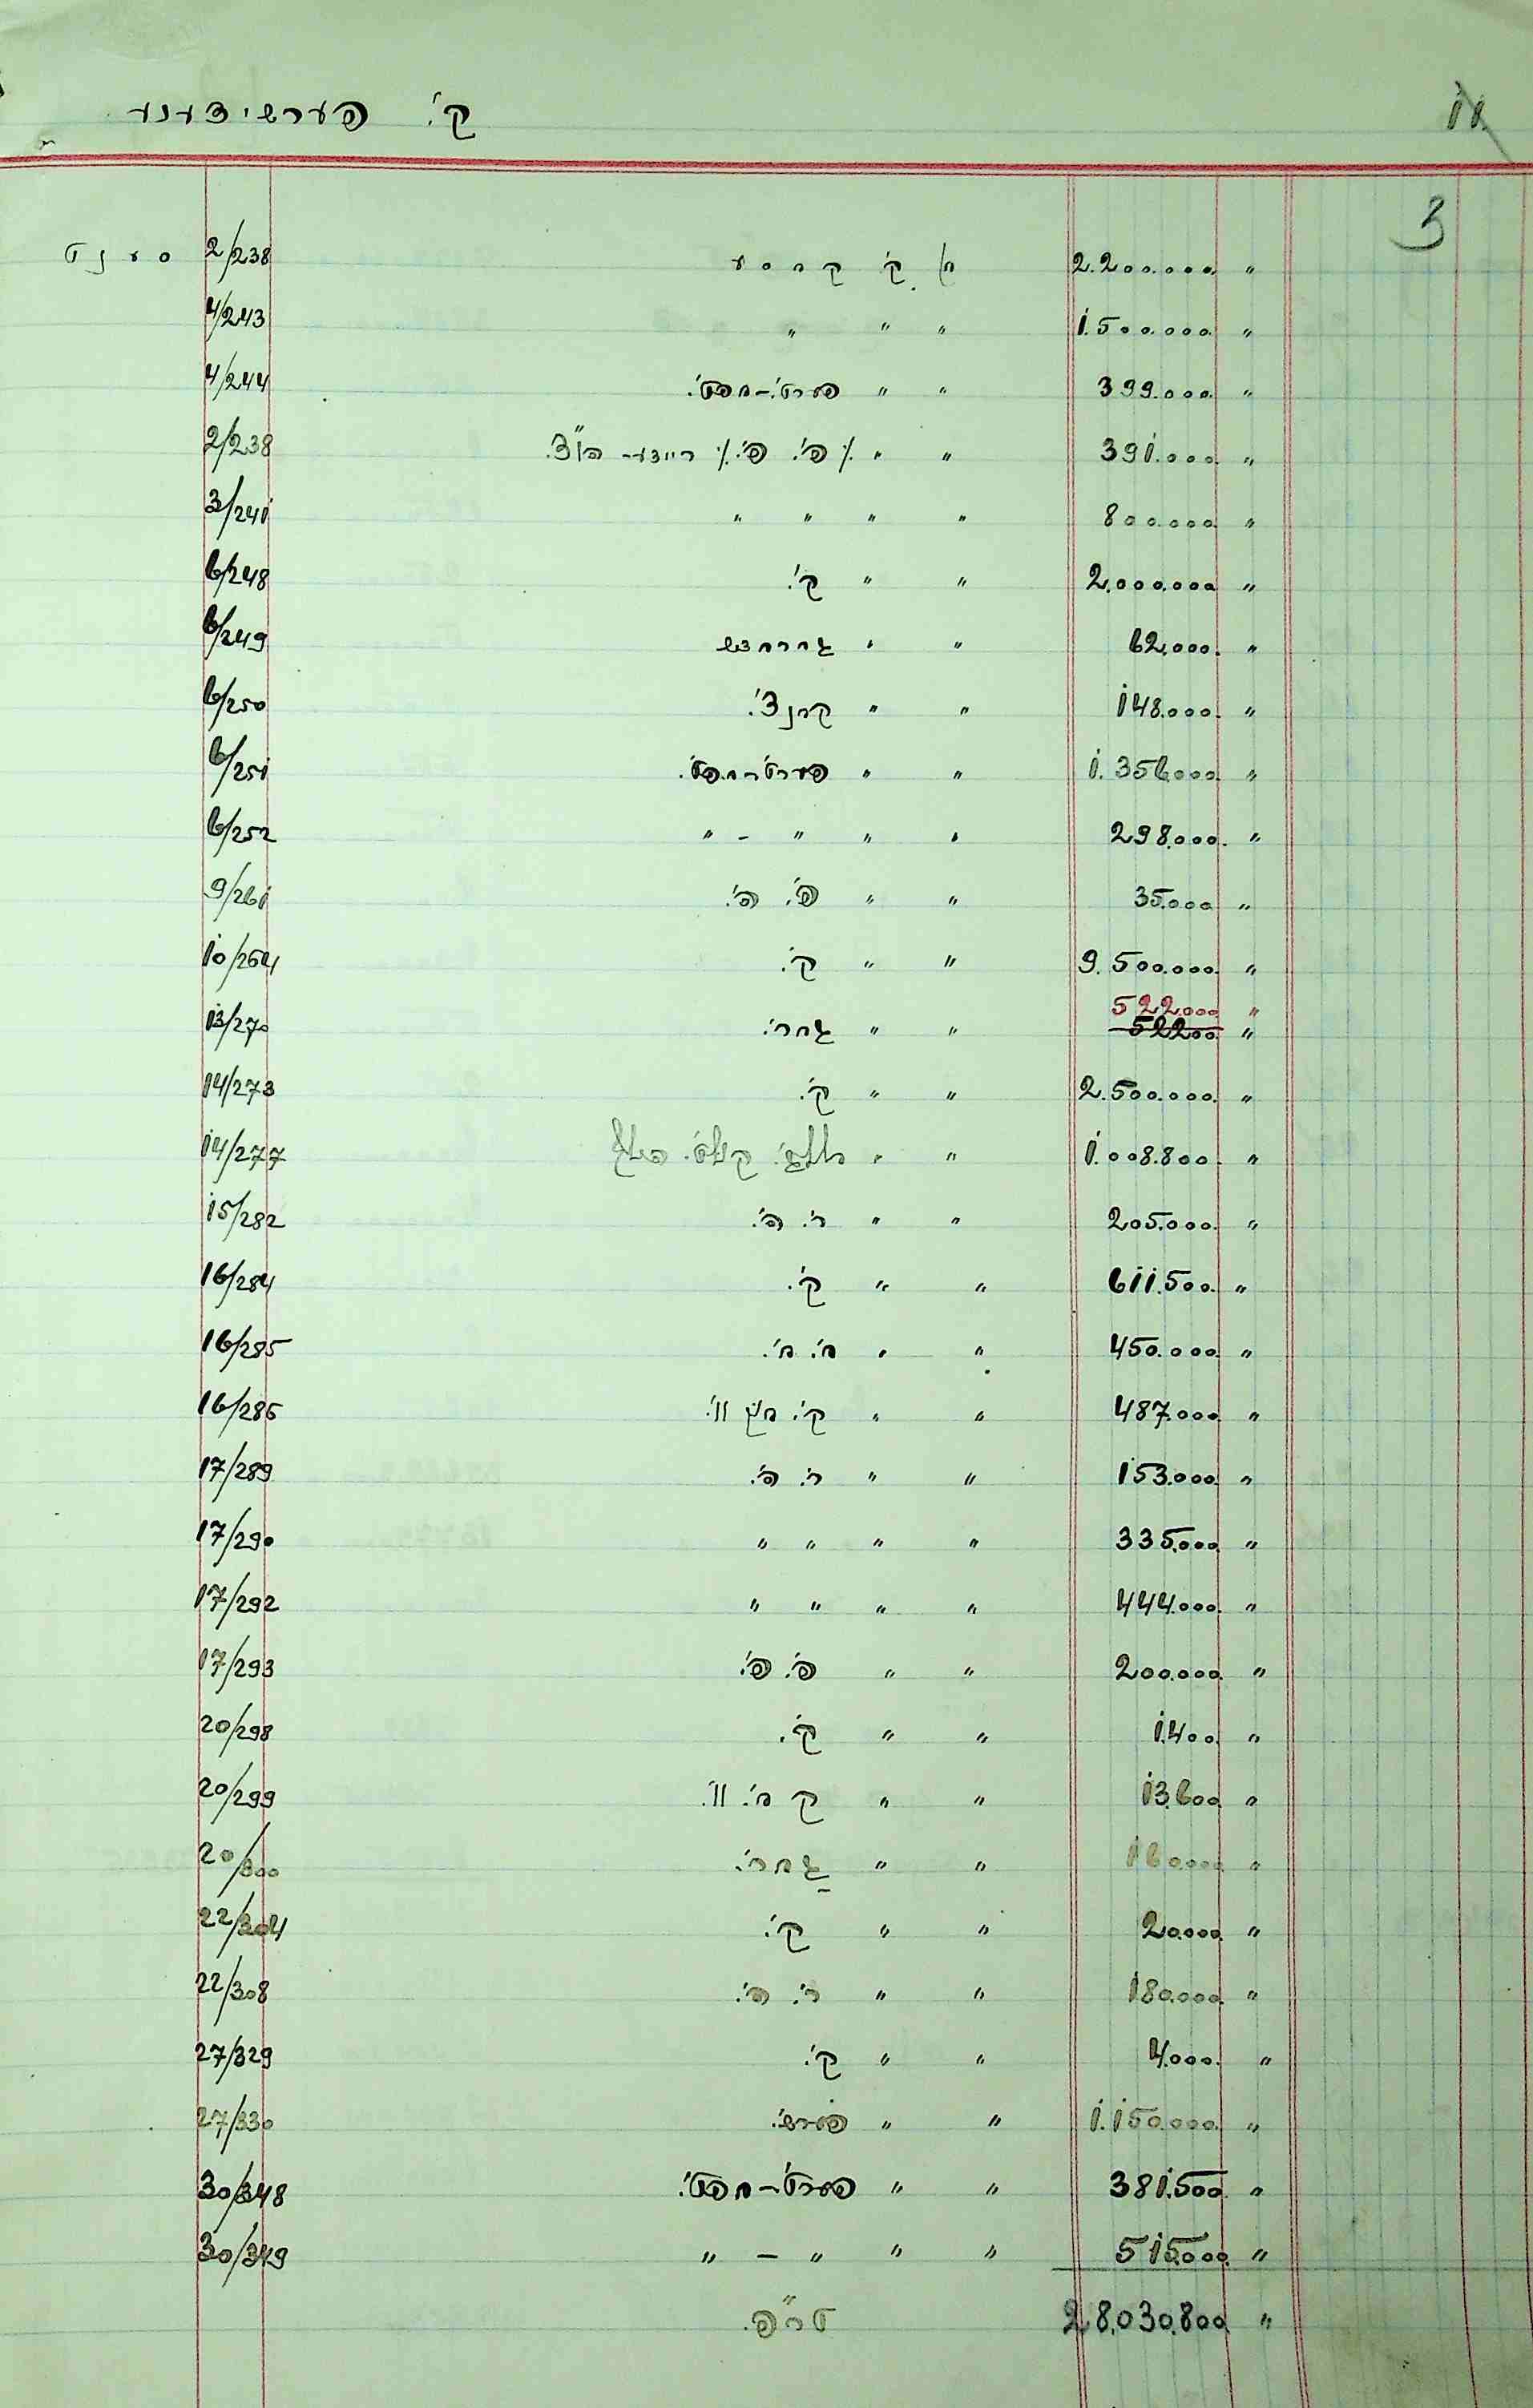 ק'. פערשידענע 11.
3
סענט 2/238 ק'. קאסע 2.200.000. "
4/243 " " " 1.500.000. "
4/244 " " פערט'.-אפט'. 399.000. "
2/238 " " ./. פ'. פ'. ./. 391.000. "
3/241 " " " " 800.000. "
6/248 " " ק'. 2.000.000 "
6/249 " " 62.000. "
6/250 " " 148.000. "
6/251 " " פערט'-אפט'. 1.356.000. "
6/252 " " " - " 298.000. "
9/261 " " פ'. פ'. 35.000 "
10/264 " " ק'. 9.500.000. "
522.000 "
13/270 " " 52200. "
14/273 " " ק'. 2.500.000. "
14/277 " " 1.008.800. "
15/282 " " ר'. פ'. 205.000. "
16/284 " " ק'. 611.500. "
16/285 " " א'. א'. 450.000. "
16/286 " " ק'. 487.000. "
17/289 " " ר'. פ'. 153.000. "
17/290 " " " " 335.000. "
17/292 " " " " 444.000. "
17/293 " " פ'. פ'. 200.000. "
20/298 " " ק'. 1.400. "
20/299 " " ק 13.600 "
20/300 " " 160.000. "
22/304 " " ק'. 20.000. "
22/308 " " ר'. פ'. 180.000. "
27/329 " " ק'. 4.000. "
27/330 " " פערש'. 1.150.000. "
30/348 " " פערט'-אפט'. 381.500. "
30/349 " " " - " 515.000. "
28.030.800. "